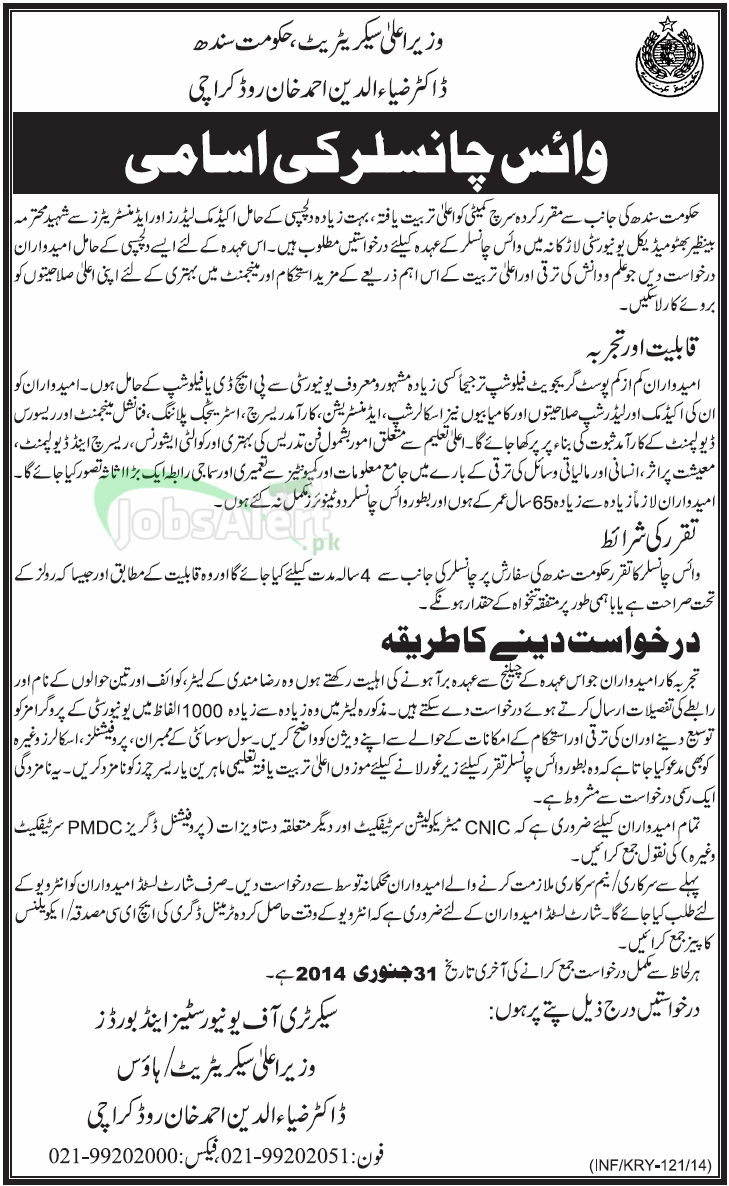 وزیراعلیٰ سیکریٹریٹ، حکومت سندھ
ڈاکٹر ضیاءالدین احمد خان روڈ کراچی
وائس چانسلر کی اسامی
حکومت سندھ کی جانب سے مقرر کردہ سرچ کمیٹی کو اعلیٰ تربیت یافتہ، بہت زیادہ دلچسپی کے حامل اکیڈمک لیڈرز اور ایڈمنسٹریٹرز سے شہید محترمہ
بینظیر بھٹو میڈیکل یونیورسٹی لاڑکانہ میں وائس چانسلر کے عہدہ کیلئے درخواستیں مطلوب ہیں۔ اس عہدہ کے لئے ایسے دلچسپی کے حامل امیدواران
درخواست دیں جو علم و دانش کی ترقی اور اعلیٰ تربیت کے اس اہم ذریعے کے مزید استحکام اور مینجمنٹ میں بہتری کے لئے اپنی اعلیٰ صلاحیتوں کو
بروئے کار لاسکیں۔
قابلیت اور تجربہ
امیدواران کم از کم پوسٹ گریجویٹ فیلوشپ ترجیحاً کسی زیادہ مشہور و معروف یونیورسٹی سے پی ایچ ڈی یا فیلوشپ کے حامل ہوں۔ امیدواران کو
ان کی اکیڈمک اور لیڈرشپ صلاحیتوں اور کامیابیوں نیز اسکالرشپ، ایڈمنسٹریشن، کارآمد ریسرچ، اسٹریٹجک پلاننگ، فنانشل مینجمنٹ اور ریسورس
ڈیولپمنٹ کے کارآمد ثبوت کی بناء پر پرکھا جائے گا۔ اعلیٰ تعلیم سے متعلق امور بشمول فن تدریس کی بہتری اور کوالٹی ایشورنس، ریسرچ اینڈ ڈیولپمنٹ،
معیشت پر اثر، انسانی اور مالیاتی وسائل کی ترقی کے بارے میں جامع معلومات اور کمیونٹیز سے تعمیری اور سماجی رابطہ ایک بڑا اثاثہ تصور کیا جائے گا۔
امیدواران لازماً زیادہ سے زیادہ 65 سال عمر کے ہوں اور بطور وائس چانسلر دو ٹینوئرز مکمل نہ کئے ہوں۔
JobsAlert
.pk
تقرر کی شرائط
وائس چانسلر کا تقرر حکومت سندھ کی سفارش پر چانسلر کی جانب سے 4 سالہ مدت کیلئے کیا جائے گا اور وہ قابلیت کے مطابق اور جیسا کہ رولز کے
تحت صراحت ہے یا باہمی طور پر متفقہ تنخواہ کے حقدار ہونگے۔
درخواست دینے کا طریقہ
تجربہ کار امیدواران جو اس عہدہ کے چیلنج سے عہدہ برآ ہونے کی اہلیت رکھتے ہوں وہ رضامندی کے لیٹر، کوائف اور تین حوالوں کے نام اور
رابطے کی تفصیلات ارسال کرتے ہوئے درخواست دے سکتے ہیں۔ مذکورہ لیٹر میں وہ زیادہ سے زیادہ 1000 الفاظ میں یونیورسٹی کے پروگرامز کو
توسیع دینے اور ان کی ترقی اور استحکام کے امکانات کے حوالے سے اپنے ویژن کو واضح کریں۔ سول سوسائٹی کے ممبران، پروفیشنلز، اسکالرز وغیرہ
کو بھی مدعو کیا جاتا ہے کہ وہ بطور وائس چانسلر تقرر کیلئے زیر غور لانے کیلئے موزوں اعلیٰ تربیت یافتہ تعلیمی ماہرین یا ریسرچرز کو نامزد کریں۔ یہ نامزدگی
ایک رسمی درخواست سے مشروط ہے۔
تمام امیدواران کیلئے ضروری ہے کہ CNIC میٹریکولیشن سرٹیفکیٹ اور دیگر متعلقہ دستاویزات (پروفیشنل ڈگریز PMDC سرٹیفکیٹ
وغیرہ) کی نقول جمع کرائیں۔
پہلے سے سرکاری/نیم سرکاری ملازمت کرنے والے امیدواران محکمانہ توسط سے درخواست دیں۔ صرف شارٹ لسٹڈ امیدواران کو انٹرویو کے
لئے طلب کیا جائے گا۔ شارٹ لسٹڈ امیدواران کے لئے ضروری ہے کہ انٹرویو کے وقت حاصل کردہ ٹرمینل ڈگری کی ایچ ای سی مصدقہ/ایکویلنس
کاپیز جمع کرائیں۔
ہر لحاظ سے مکمل درخواست جمع کرانے کی آخری تاریخ 31 جنوری 2014 ہے۔
درخواستیں درج ذیل پتے پر ہوں:
سیکرٹری آف یونیورسٹیز اینڈ بورڈز
وزیراعلیٰ سیکریٹریٹ/ہاؤس
ڈاکٹر ضیاءالدین احمد خان روڈ کراچی
فون: 021-99202051، فیکس: 021-99202000
(INF/KRY-121/14)